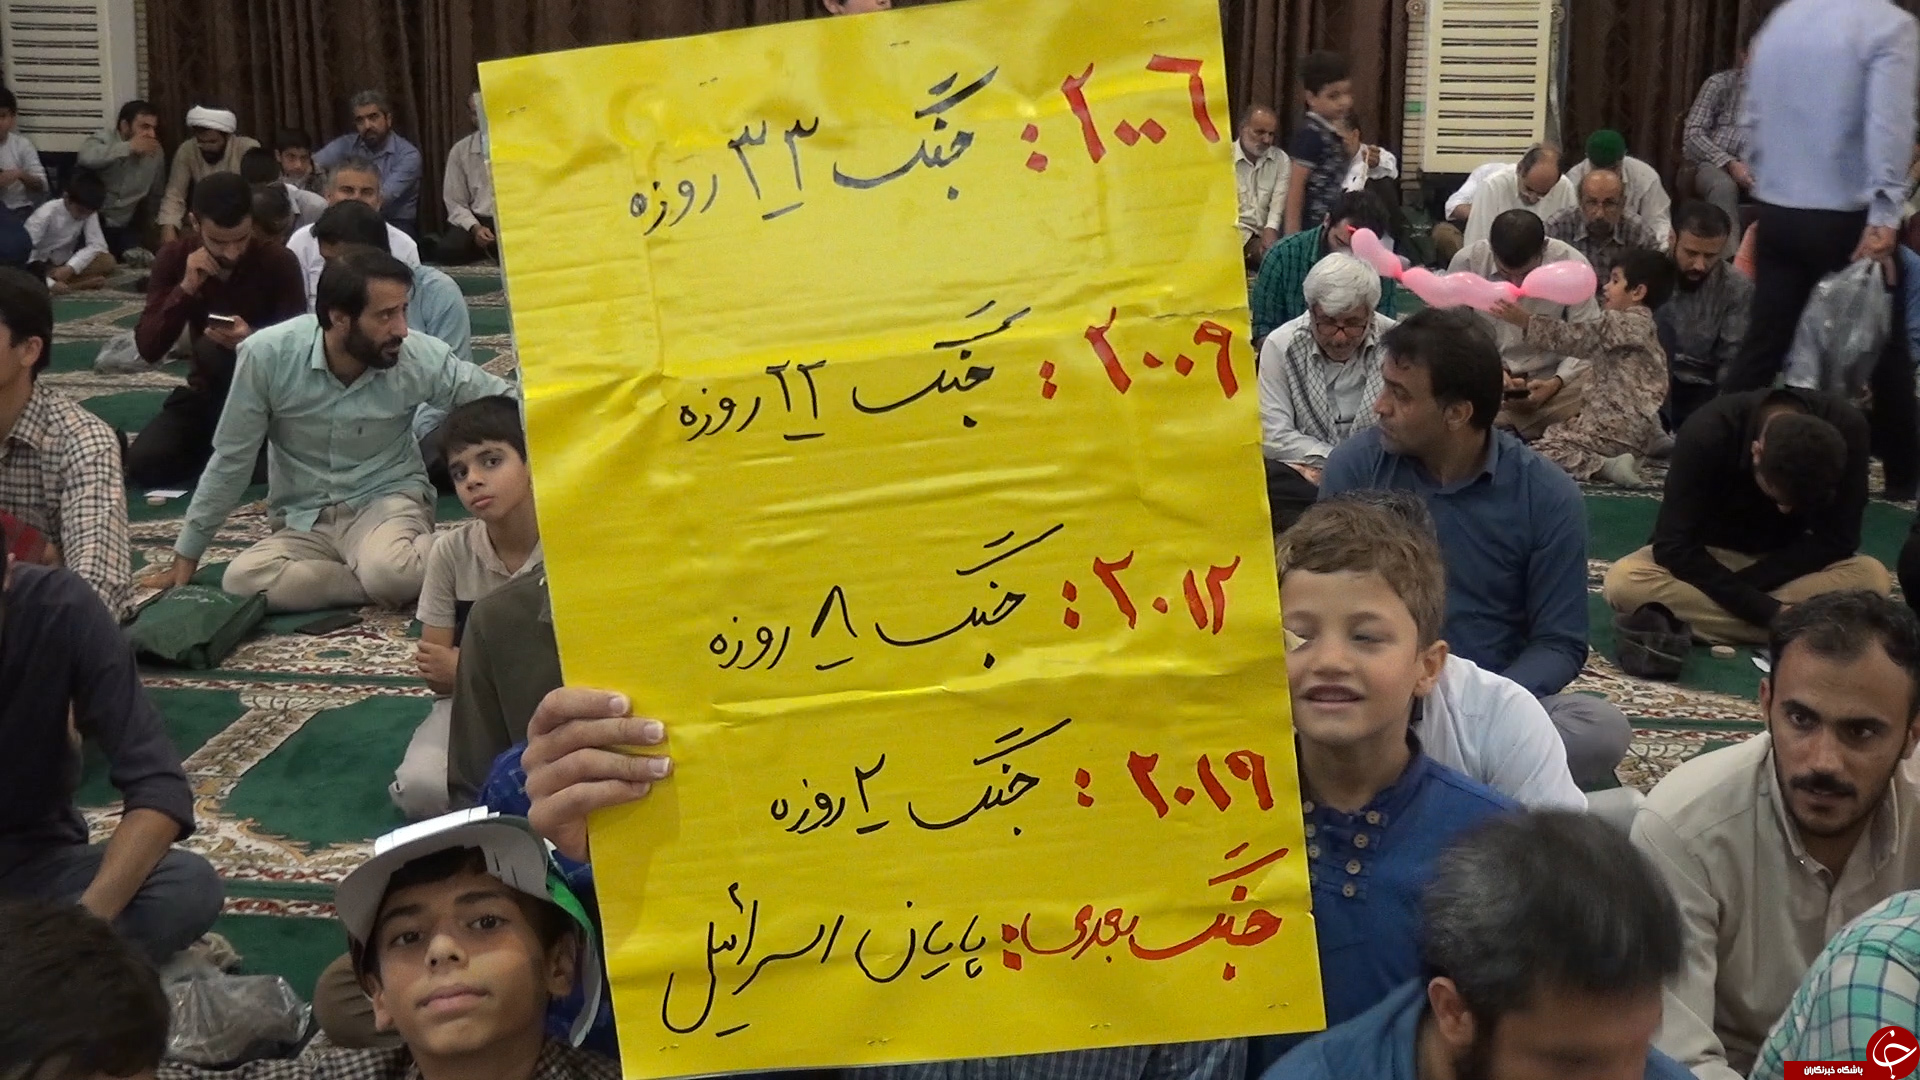 ۲۰۰۶: جنگ ۳۳ روزه
۲۰۰۹: جنگ ۲۲ روزه
۲۰۱۲: جنگ ۸ روزه
۲۰۱۹: جنگ ۲ روزه
جنگ بعدی: پایان اسرائیل
باشگاه خبرنگاران